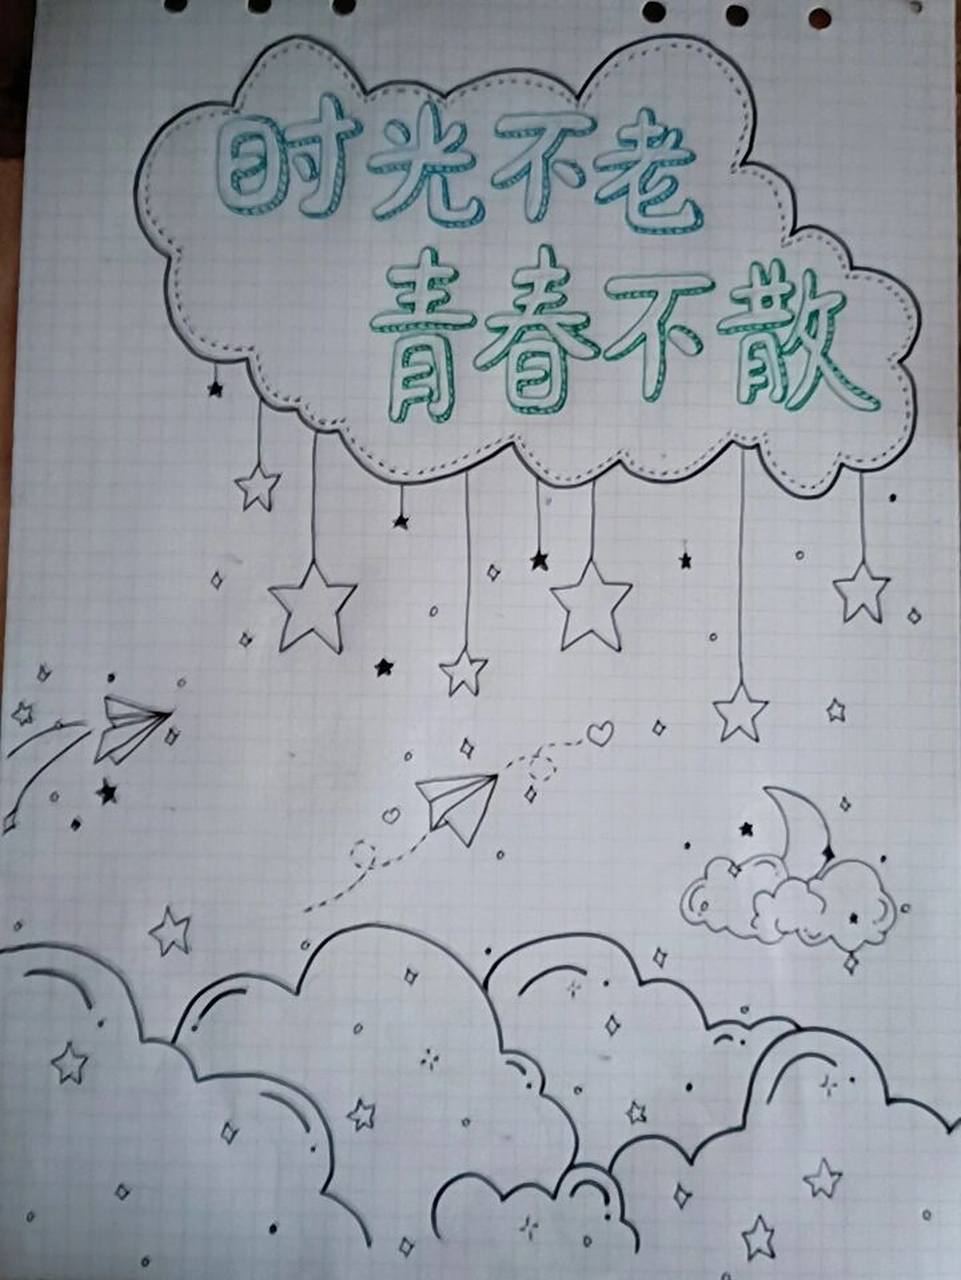 时光不老
青春不散